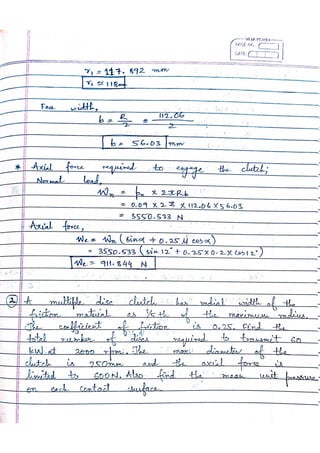 PAGE NO.
DATE
r₁ = 117.892 mm
r₁ ≈ 118mm
Face width,
b = R/2 = 112.06/2
b = 56.03 mm
* Axial force required to engage the clutch;
Normal load,
Wn = pn × 2πRb
= 0.09 × 2π × 112.06 × 56.03
= 3550.533 N
Axial force,
We = Wn (sinα + 0.25 μ cosα)
= 3550.533 (sin 12° + 0.25 × 0.2 × cos 12°)
We = 911.844 N
② A multiple disc clutch has radial width of the
friction material as 1/5 th of the maximum radius.
The coefficient of friction is 0.25. Find the
total number of discs required to transmit 60
kW at 3000 rpm. The max. diameter of the
clutch is 250mm and the axial force is
limited to 600N. Also find the mean unit pressure
on each contact surface.